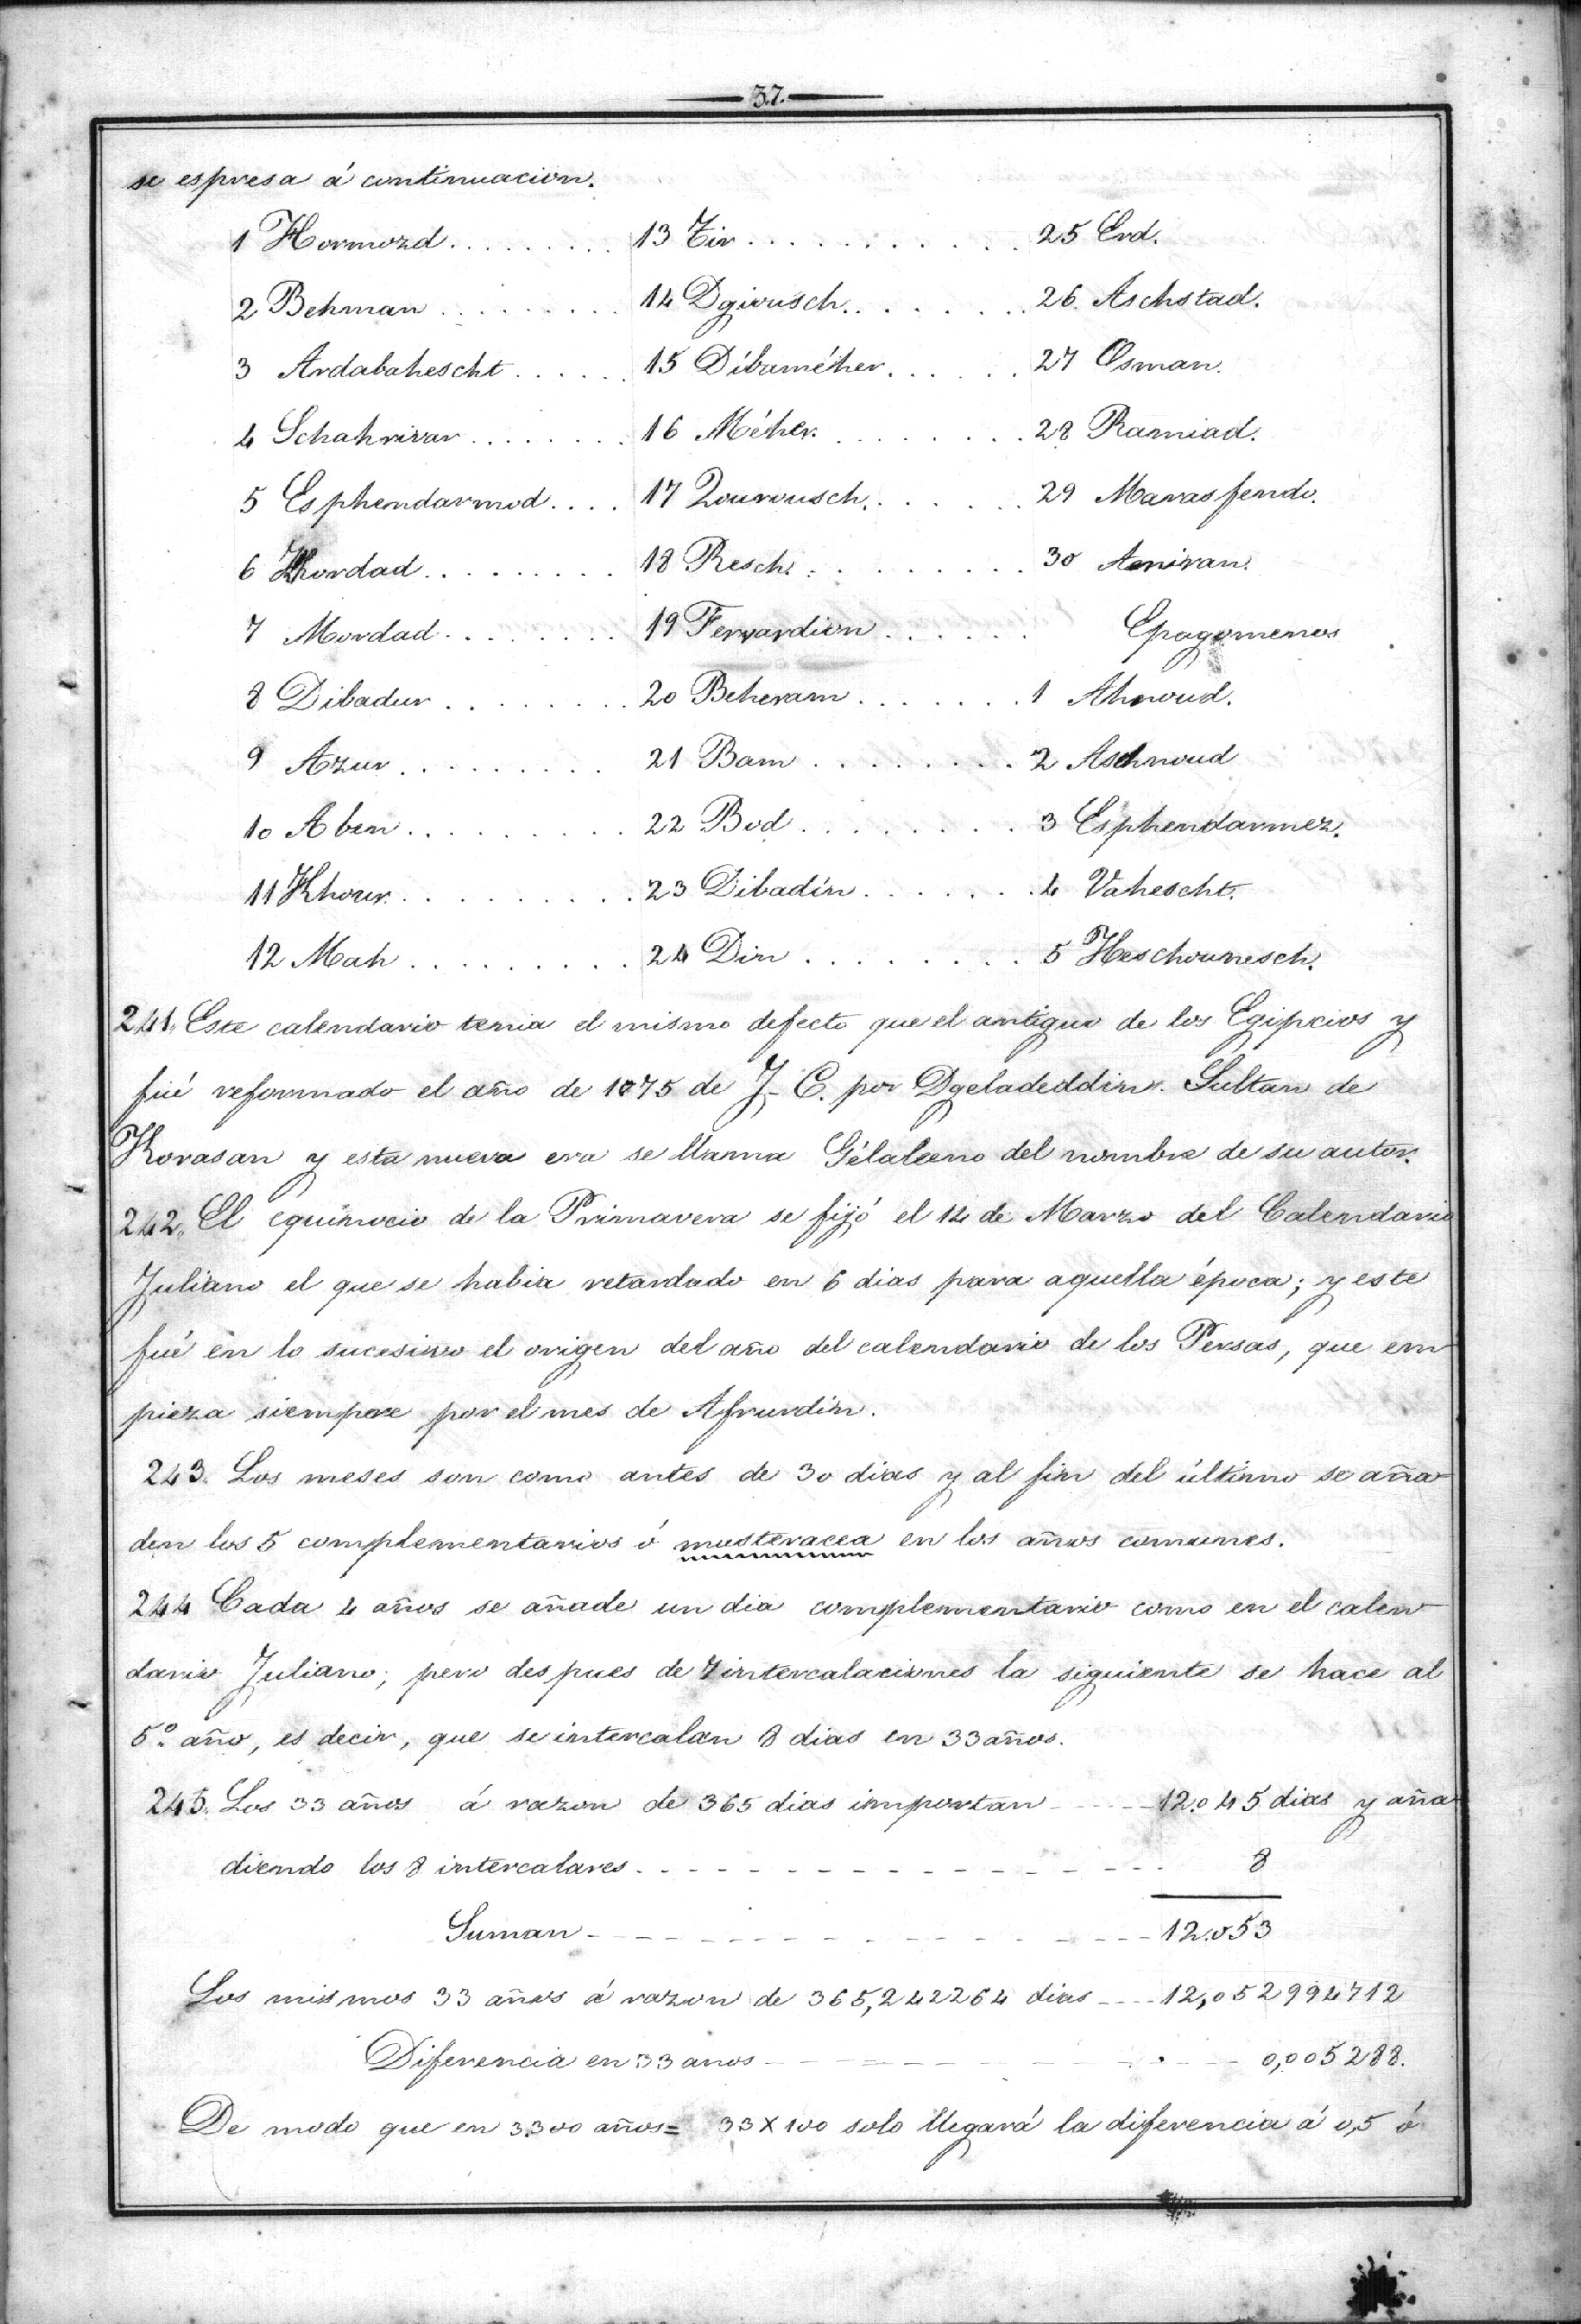 37.
se espresa á continuacion.
1 Hormozd ........ 13 Tir ........... 25 Erd.
2 Behman ......... 14 Dgiousch ....... 26 Aschstad.
3 Ardabahescht ...... 15 Dibaméher ...... 27 Osman.
4 Schahrivar ........ 16 Méher. ........ 28 Ramiad.
5 Esphendarmod .... 17 Zourousch ....... 29 Marasfendo.
6 Khordad ......... 18 Resch. ......... 30 Aniran.
7 Mordad ........ 19 Fervardion ...... Epagomenos
8 Dibadur ......... 20 Beheram ....... 1 Ahnoud.
9 Azur ......... 21 Bam ........ 2 Aschnoud
10 Aben ......... 22 Bod ........ 3 Esphendarmez.
11 Khour ......... 23 Dibadin ....... 4 Vahescht.
12 Mah ......... 24 Din ........ 5 Heschounesch.
241. Este calendario tenia el mismo defecto que el antiguo de los Egipcios y
fué reformado el año de 1075 de J-C. por Dgeladeddin. Sultan de
Korasan y esta nueva era se llama Gélaleano del nombre de su autor.
242. El equinocio de la Primavera se fijó el 14 de Marzo del Calendario
Juliano el que se habia retardado en 6 dias para aquella época; y este
fué en lo sucesivo el origen del año del calendario de los Persas, que em
pieza siempre por el mes de Afrurdin.
243. Los meses son como antes de 30 dias y al fin del último se aña
den los 5 complementarios ó musteracea en los años comunes.
244 Cada 4 años se añade un dia complementario como en el calen
dario Juliano; pero despues de 7 intercalaciones la siguiente se hace al
5º año, es decir, que se intercalan 8 dias en 33 años.
245. Los 33 años á razon de 365 dias importan ----- 12.045 dias y aña
diendo los 8 intercalares. - - - - - - - - - - - - - 8
Suman - - - - - - - - - - - - - - 12.053
Los mismos 33 años á razon de 365,242264 dias ---- 12,052994712
Diferencia en 33 anos - - - - - - - - - - - - 0,005288.
De modo que en 3.300 años = 33 x 100 solo llegará la diferencia á 0,5 ó